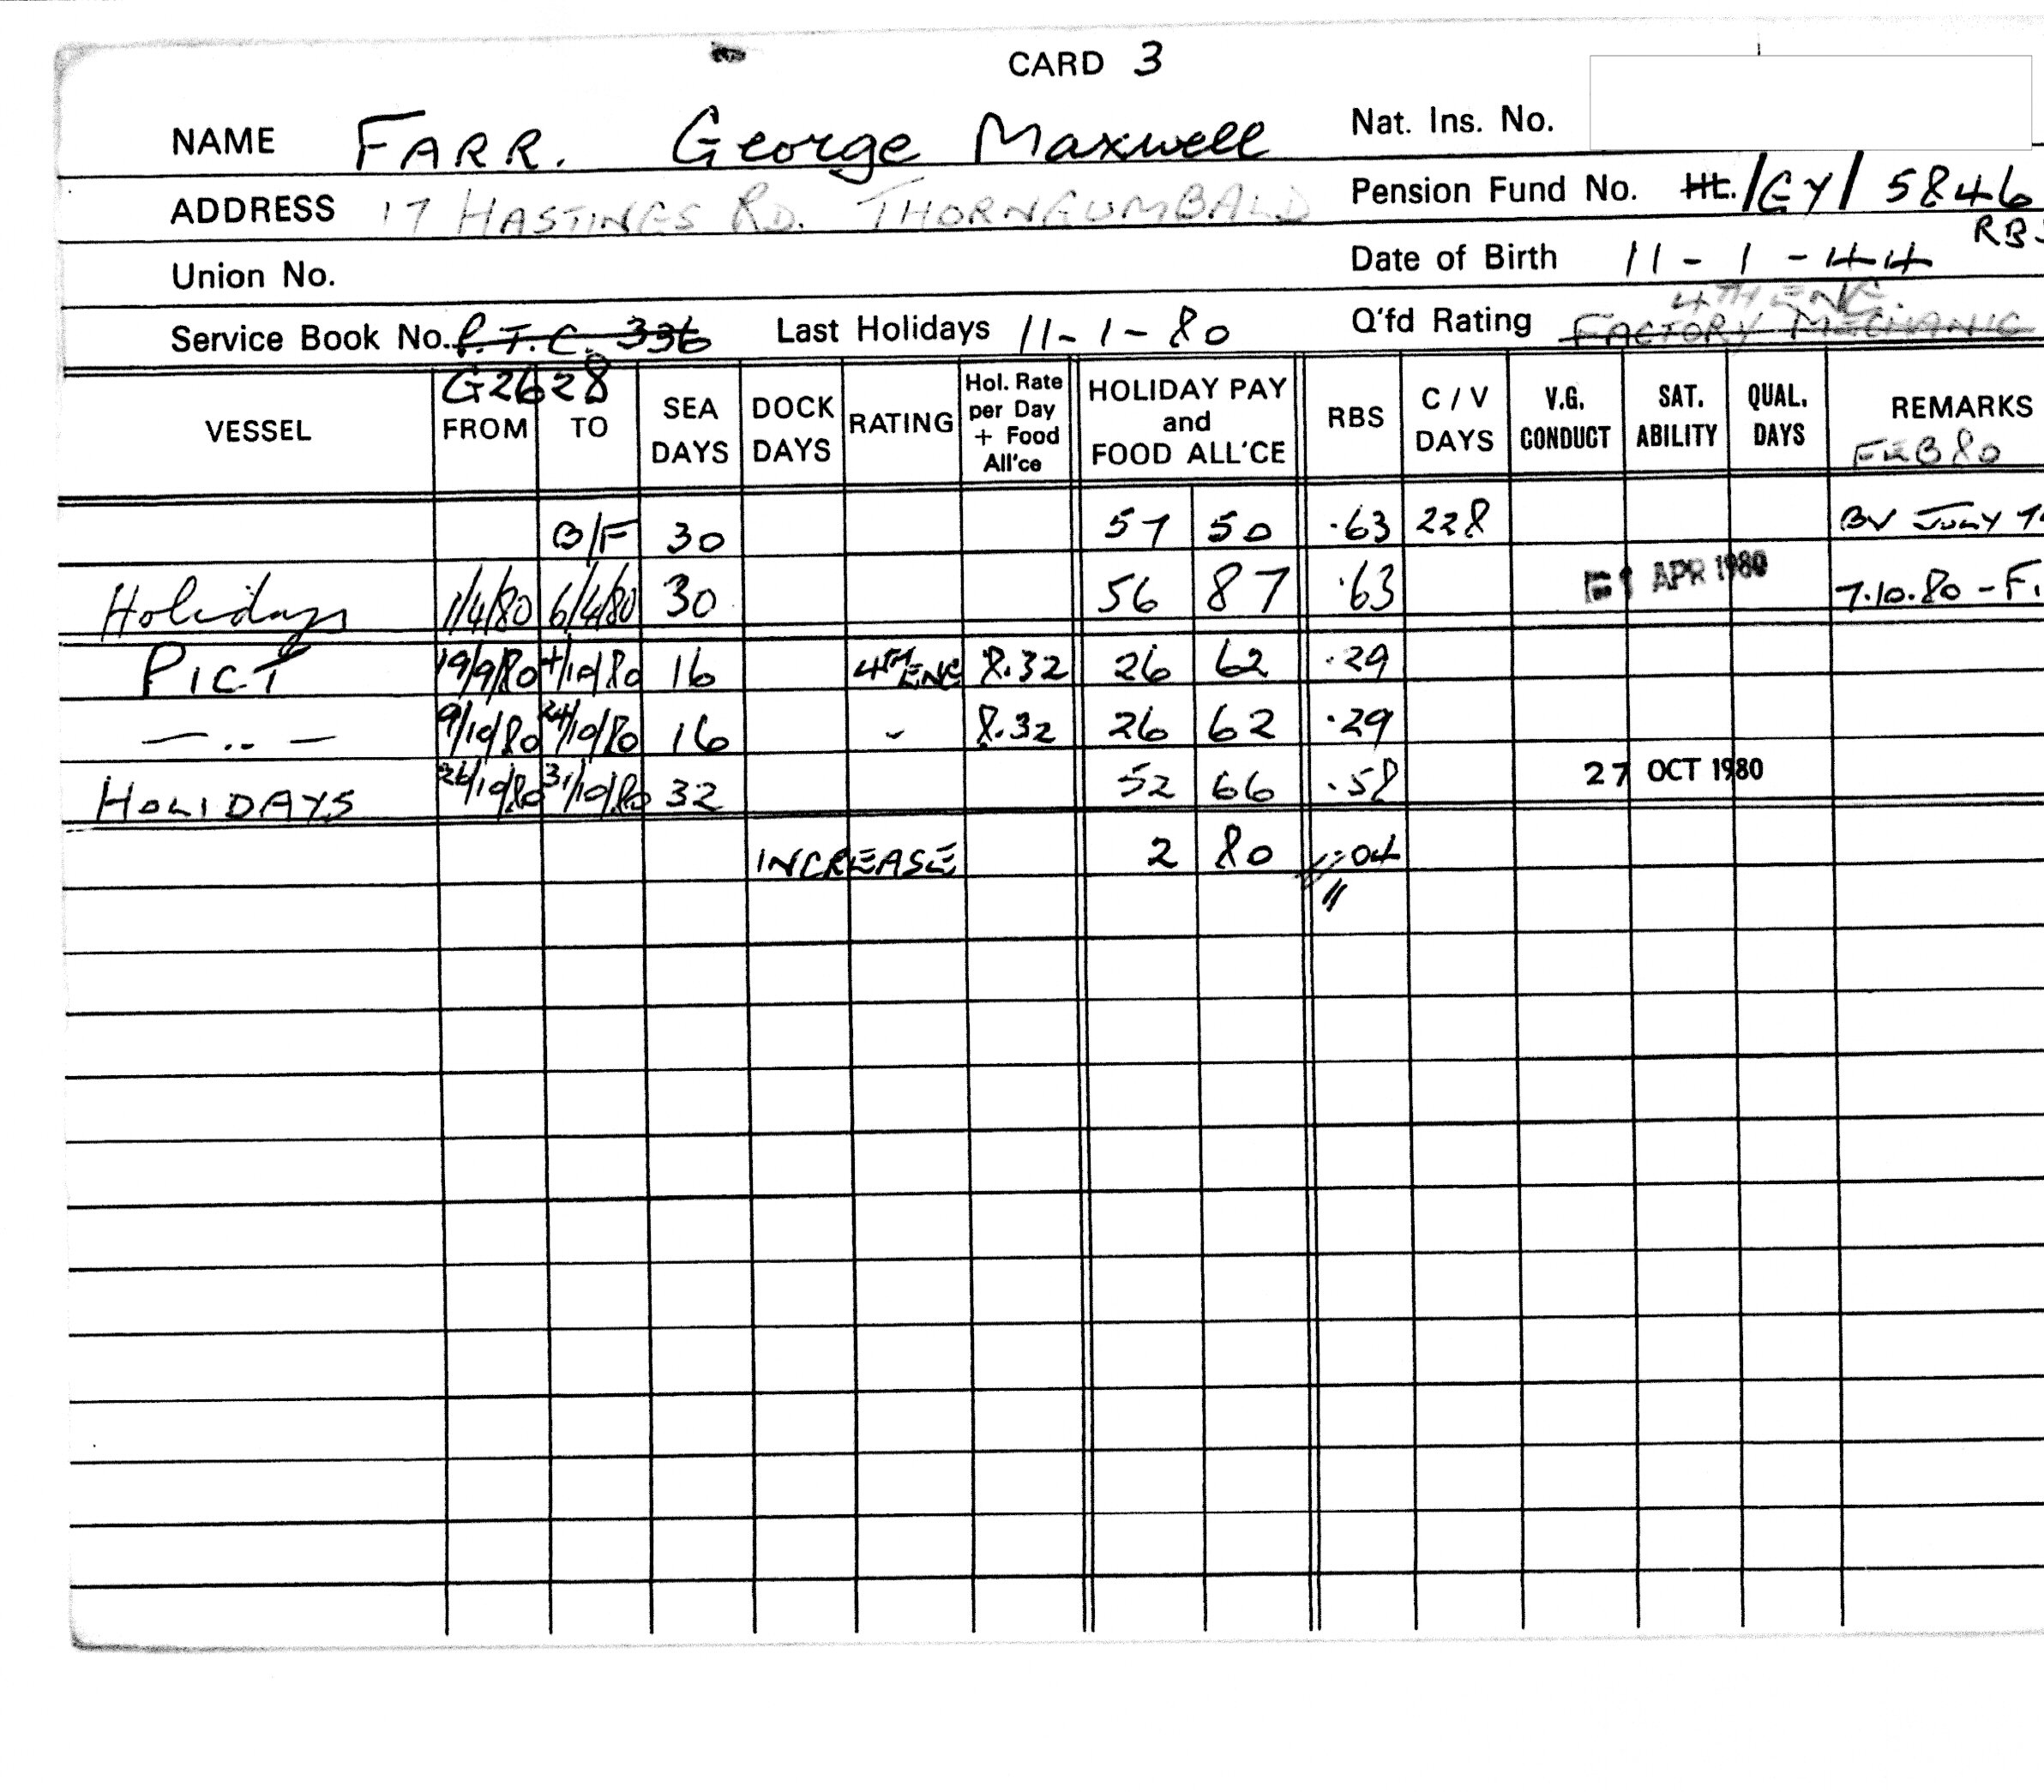 CARD 3
NAME FARR. George Maxwell Nat. Ins. No.
ADDRESS 17 HASTINGS RD. THORNGUMBALD Pension Fund No. Ht./GY/ 5846
RBS
Union No. Date of Birth 11-1-44
4TH ENG.
Service Book No. P.T.C. 336 Last Holidays 11-1-80 Q'fd Rating FACTORY MECHANIC
G2628
VESSEL FROM TO SEA DAYS DOCK DAYS RATING Hol. Rate per Day + Food All'ce HOLIDAY PAY and FOOD ALL'CE RBS C/V DAYS V.G. CONDUCT SAT. ABILITY QUAL. DAYS REMARKS
FEB 80
B/F 30 57 50 .63 228 BV JULY
Holidays 1/4/80 6/4/80 30 56 87 .63 1 APR 1980 7.10.80 - F.
PICT 19/9/80 4/10/80 16 4TH ENG 8.32 26 62 .29
— .. — 9/10/80 24/10/80 16 - 8.32 26 62 .29
HOLIDAYS 26/10/80 31/10/80 32 52 66 .58 27 OCT 1980
INCREASE 2 80 .04